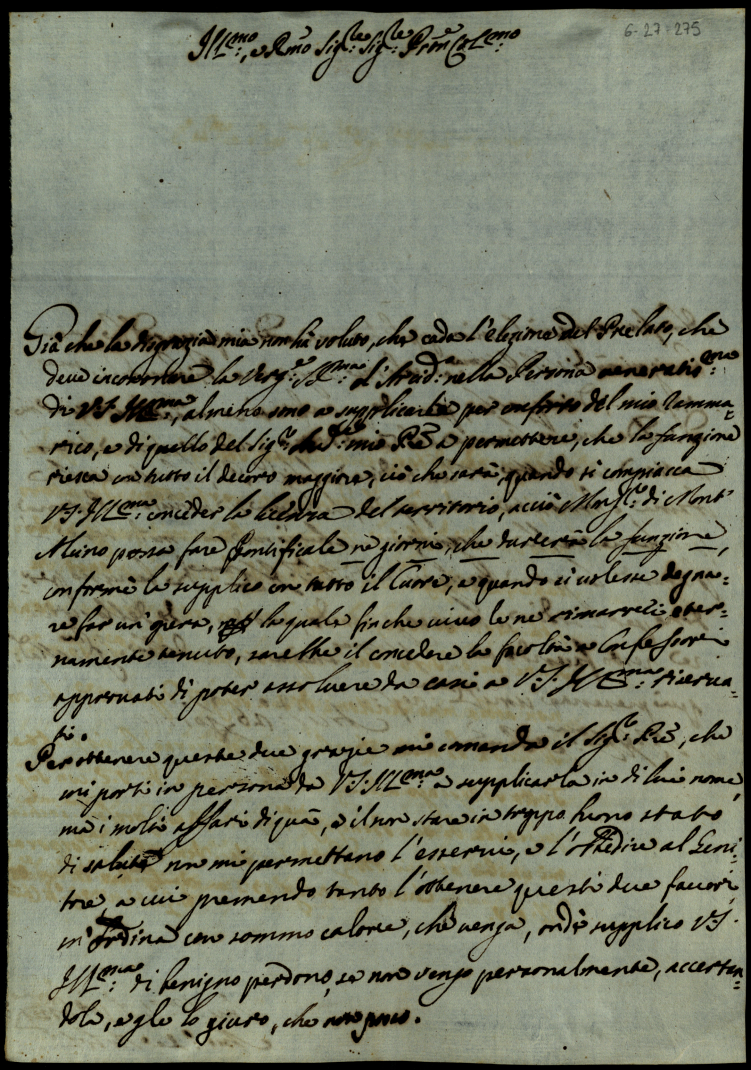 6-27=275
Ill:mo, e R.mo Sig:re Sig:re P̃ron Col:mo
Già che la disgrazia mia non hà voluto, che cada l'elezione del Prelato, che
deve incoronare la Verg:e S:ma d'Arcid:a nella Persona veneratis:ma
di V.S. Ill:ma, almeno sono a supplicarla per conforto del mio ramma=
rico, e di quello del Sig:r mio P̃re a permettere, che la funzione
riesca con tutto il decoro maggiore, ciò che sarà, quando si compiacca
V.S. Ill:ma conceder la licenza del territorio, acciò Mons:r di Mont'
Alcino possa fare Pontificale ne giorni, che durerà la funzione,
conforme la supplico con tutto il Cuore, e quando si volesse degna=
re far un' opera, la quale finche vivo le ne rimarrei eter=
namente tenuto, sarebbe il concedere la facoltà a Confessori
approvati di poter assolvere da casi a V.S. Ill:ma riserva=
ti.
Per ottenere queste due grazie mi comanda il Sig:re P̃re, che
mi porti in persona da V.S. Ill:ma a supplicarla in di lui nome,
mà i molti affari di quà, e il non stare in troppo buono stato
di salute non mi permettano l'esservi, e l'obbedire al Geni=
tre, a cui premendo tanto l'ottenere questi due favori,
m'ordina con sommo calore, che venga, onde supplico V.S.
Ill:ma di benigno perdono, se non vengo personalmente, accertan=
dola, e gle lo giuro, che non posso.